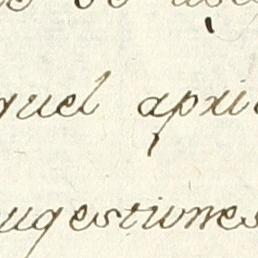 quel apri
ugestiones